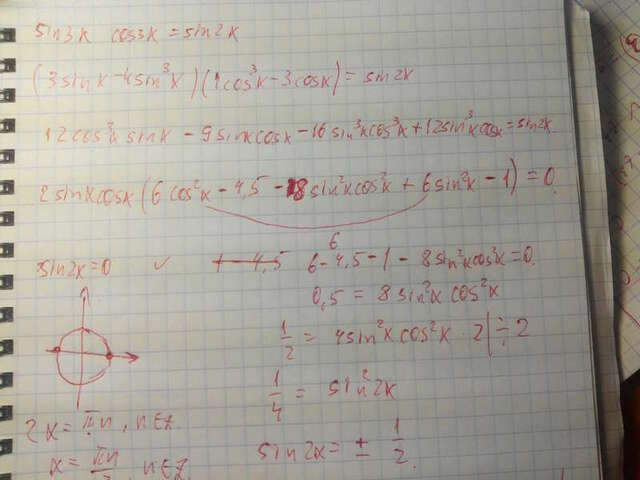 sin3x cos3x = sin2x
(3sinx - 4sin³x)(4cos³x - 3cosx) = sin2x
12cos³x sinx - 9sinxcosx - 16sin³xcos³x + 12sin³xcosx = sin2x
2sinxcosx(6cos²x - 4,5 - 8sin²xcos²x + 6sin²x - 1) = 0
6
sin2x=0 ✓ 6 - 4,5 - 1 - 8sin²xcos²x = 0
0,5 = 8sin²x cos²x
1/2 = 4sin²xcos²x · 2 | ÷ 2
1/4 = sin²2x
2x = πn, n∈Z
sin2x = ± 1/2
x = πn/2, n∈Z